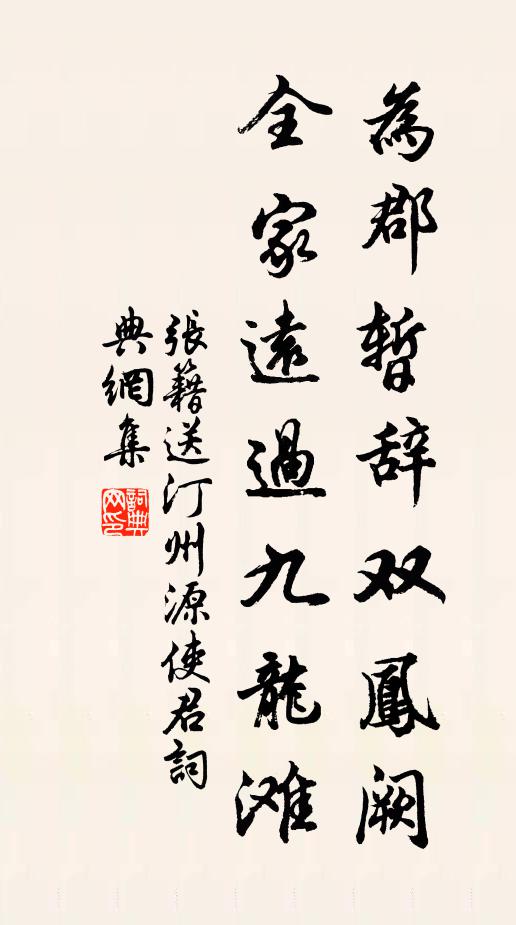 為郡暫辞双鳳阙
全家遠過九龍滩
張籍送汀州源使君詞
典網集
詞典网印